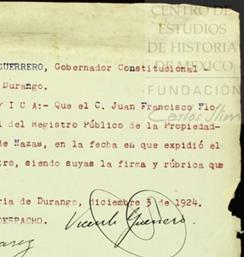 CENTRO DE
ESTUDIOS
DE HISTORIA
DE MÉXICO
FUNDACIÓN
Carlos Slim
GUERRERO, Gobernador Constitucional -
Durango.
I C A:- Que el C. Juan Francisco Flo
del Registro Público de la Propiedad-
de Nazas, en la fecha en que expidió el
tro, siendo suyas la firma y rúbrica que
ria de Durango, diciembre 3 de 1924.
DESPACHO.
Vicente Guerrero.